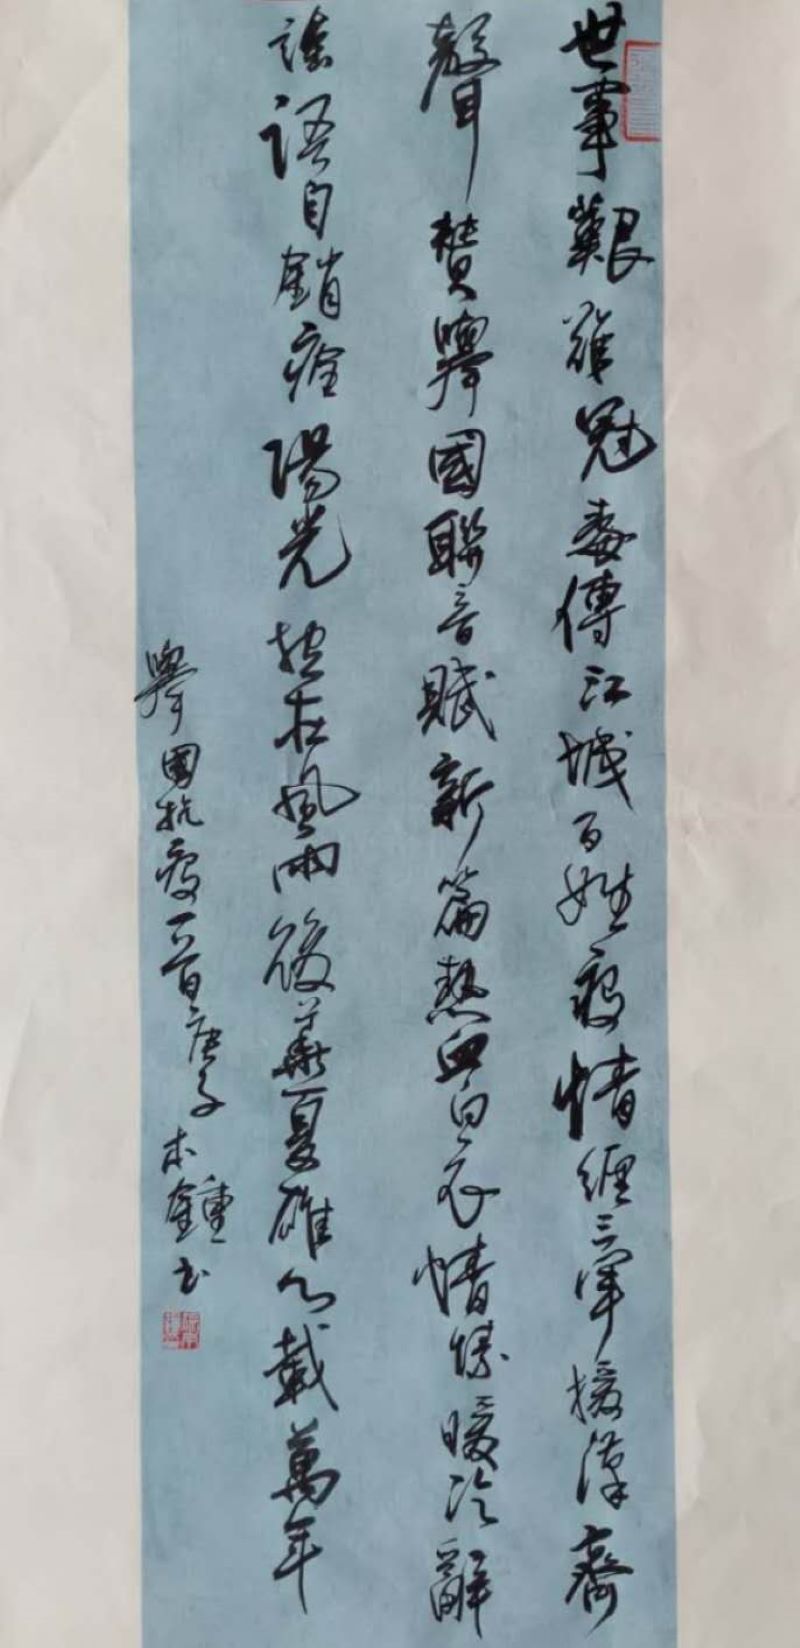 世事艱難冠毒傳江城百姓疫情纏三軍援漢齊
聲贊舉國聯音賦新篇熱血白衣情條暖冷辭
謠語自銷痊陽光總在風雨後華夏雄心載萬年
舉國抗疫一首庚子本鍾书